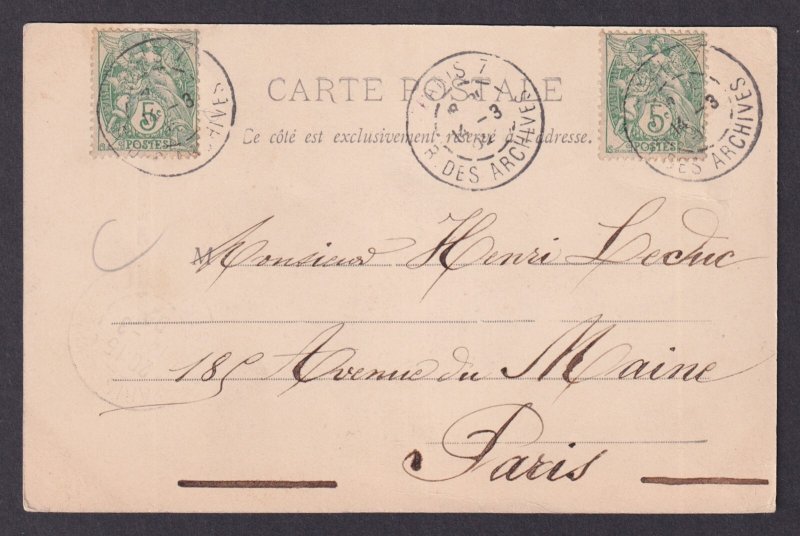 CARTE POSTALE
Ce côté est exclusivement réservé à l'adresse.
5c
POSTES
5c
POSTES
PARIS 7
R. DES ARCHIVES
DES ARCHIVES
M
Monsieur Henri Leduc
185 Avenue du Maine
Paris